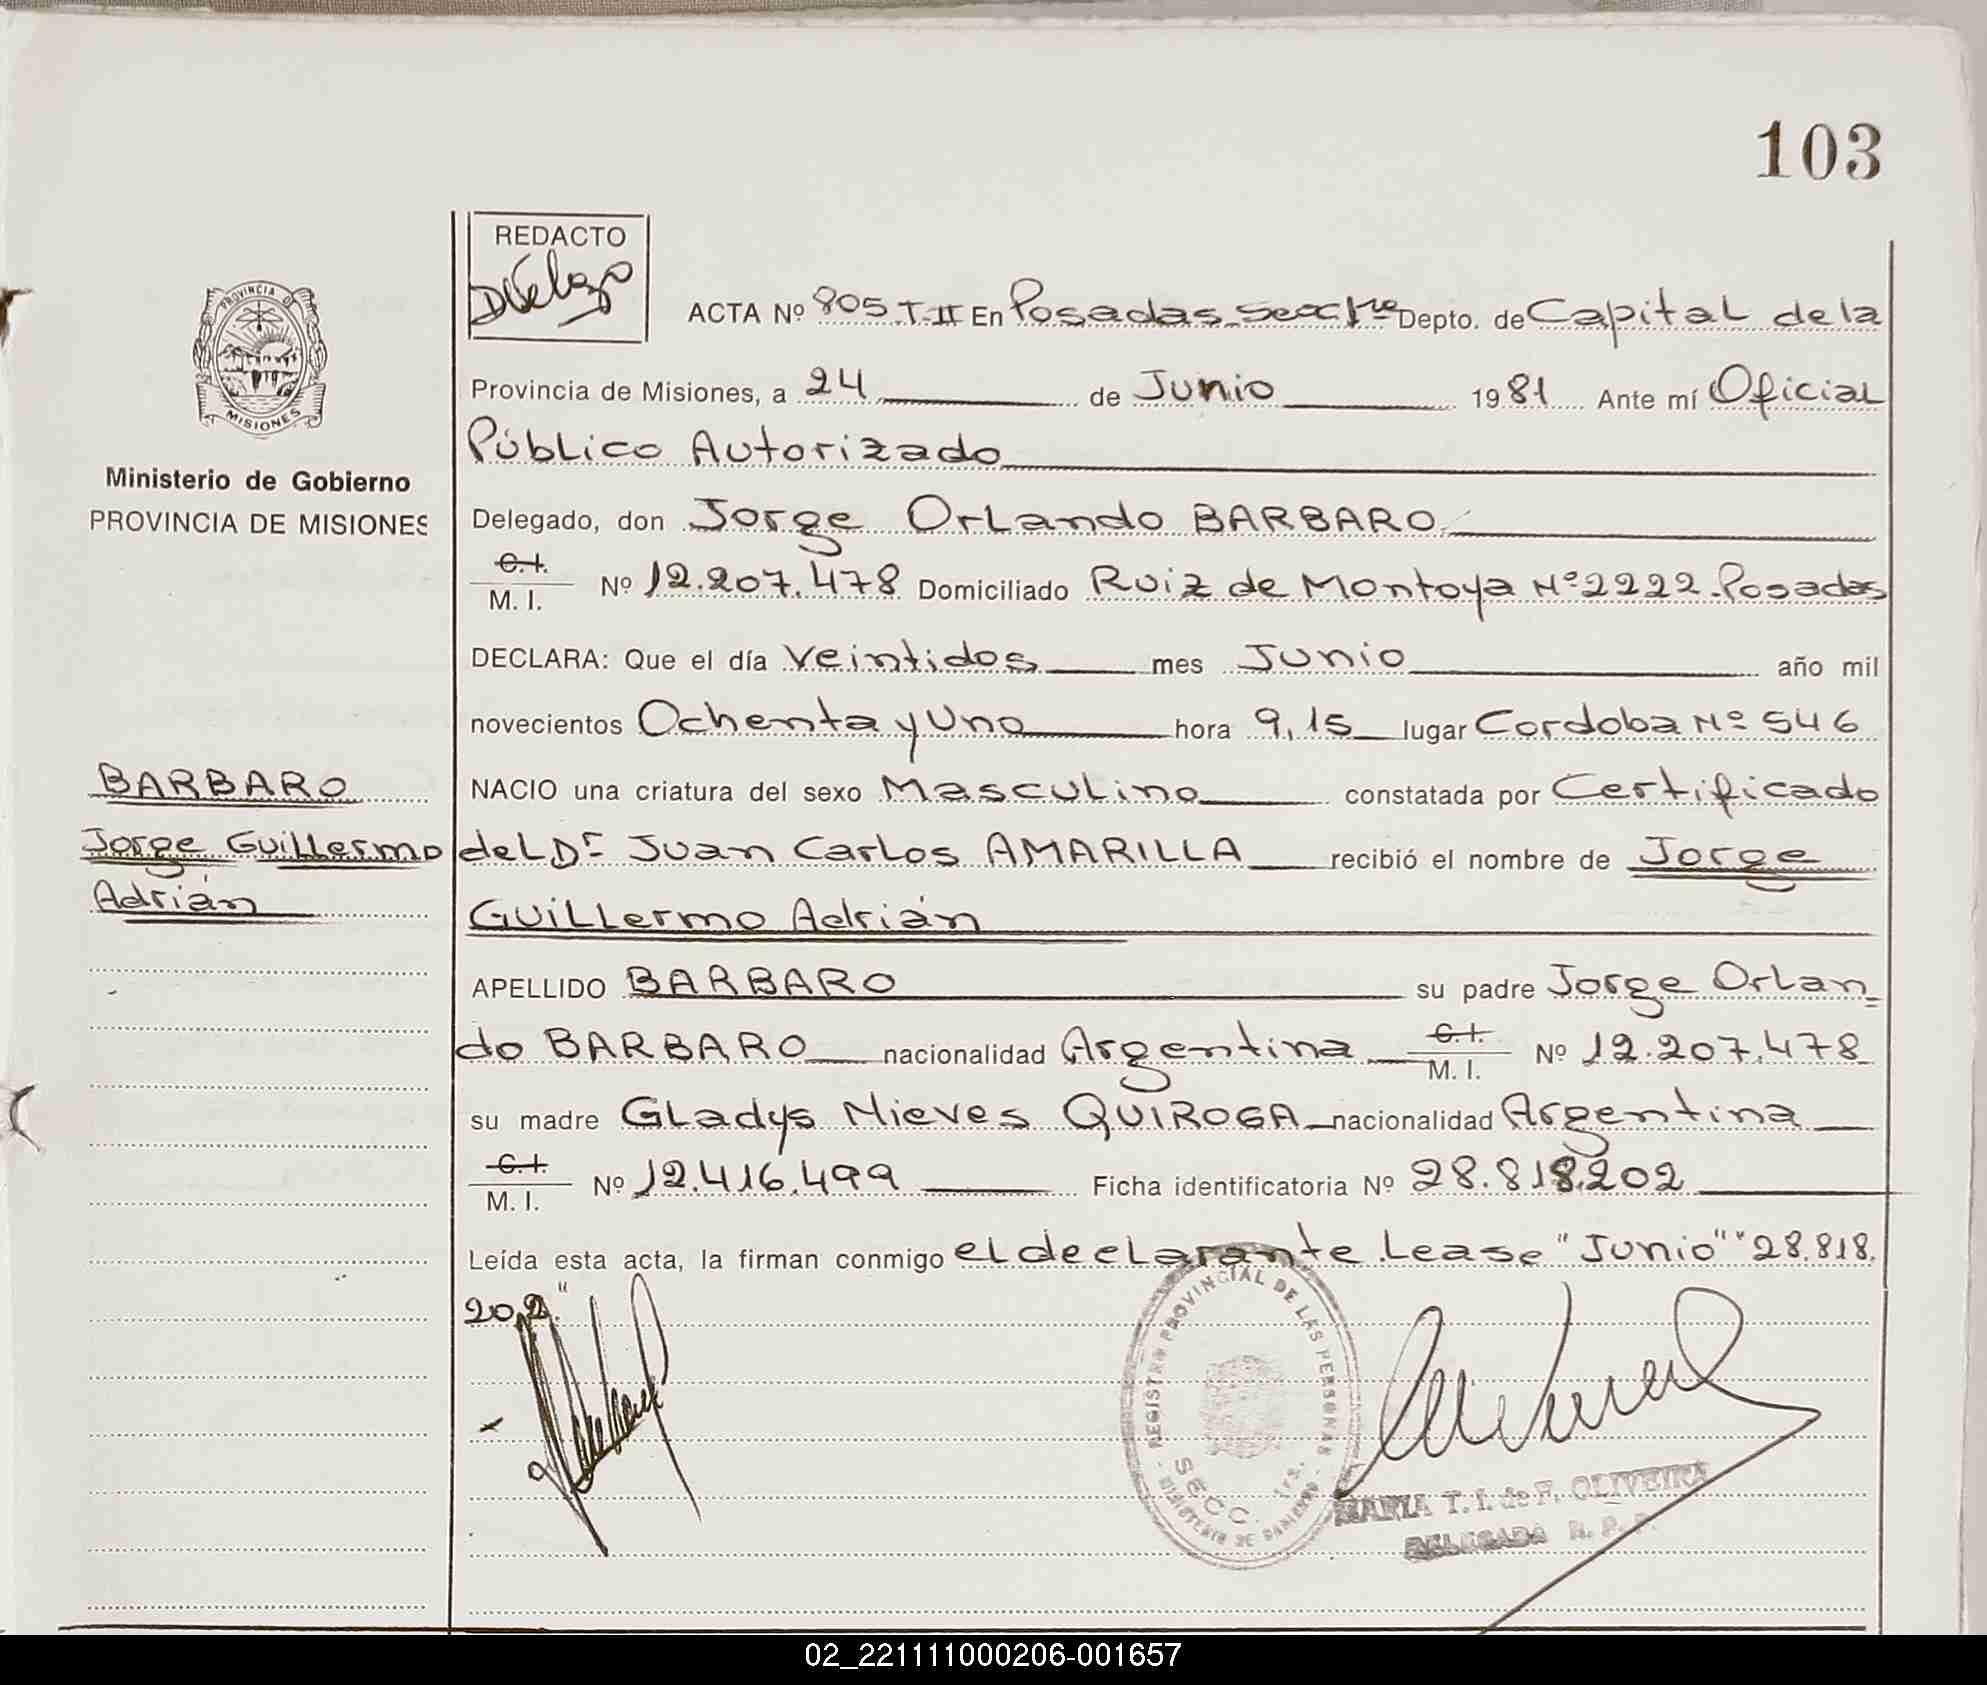 103
REDACTO
ACTA Nº 805 T-II En Posadas Secc 1ra Depto. de Capital de la
PROVINCIA DE
MISIONES
Provincia de Misiones, a 24 de Junio 1981 Ante mí Oficial
Público Autorizado
Ministerio de Gobierno
PROVINCIA DE MISIONES
Delegado, don Jorge Orlando BARBARO
C.I.
M. I. Nº 12.207.478 Domiciliado Ruiz de Montoya Nº 2222. Posadas
DECLARA: Que el día Veintidos mes Junio año mil
novecientos Ochenta y Uno hora 9,15 lugar Cordoba Nº 546
BARBARO
NACIO una criatura del sexo Masculino constatada por Certificado
Jorge Guillermo
del Dr Juan Carlos AMARILLA recibió el nombre de Jorge
Adrián
Guillermo Adrián
APELLIDO BARBARO su padre Jorge Orlan
do BARBARO nacionalidad Argentina C.I. M. I. Nº 12.207.478
su madre Gladys Nieves QUIROGA nacionalidad Argentina
C.I.
M. I. Nº 12.416.499 Ficha identificatoria Nº 28.818.202
Leída esta acta, la firman conmigo el declarante. Lease "Junio" "28.818.
202"
REGISTRO PROVINCIAL DE LAS PERSONAS
SECC. 1ra.
MINISTERIO DE GOBIERNO
MARIA T. I. de F. OLIVEIRA
DELEGADA R. P. P.
02_221111000206-001657